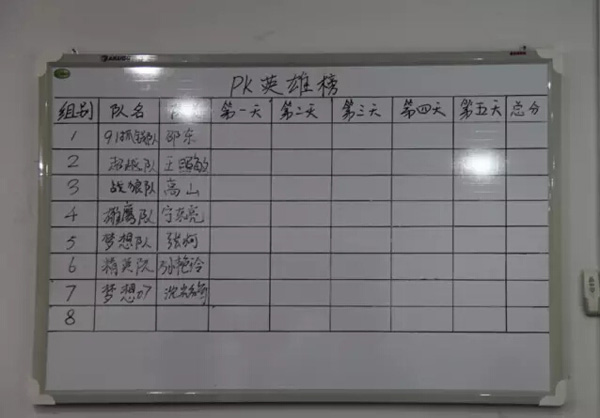 PK英雄榜
组别 队名 第一天 第二天 第三天 第四天 第五天 总分
1 队 邵东
2 超越队 王
3 战狼队 高山
4 雄鹰队 宁亮
5 梦想队 张柯
6 精英院 孙艳玲
7 梦想07 沈
8